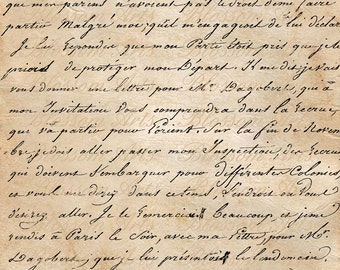 que mes parens n'avoient pas le droit de me faire
partir Malgré moi, qu'il m'engageoit de lui déclar
Je lui Repondis que mon Parti Etoit pris que je le
priois de proteger mon Départ. Il me dit je vais
vous donner une lettre pour Mr. Dagobert, qui à
mon Invitation Vous comprendra dans la Recrue
qui va partir pour Lorient. Sur la fin de Novem
bre, je dois aller passer mon Inspection, des Recrues
qui doivent S'embarquer pour differentes Colonies,
et vous me direz dans ce tems, l'endroit ou Vous
désirez aller. Je le Remerciai Beaucoup, et je me
rendis à Paris le Soir, avec ma Lettre, pour Mr.
Dagobert, que je lui présentai le lendemain.